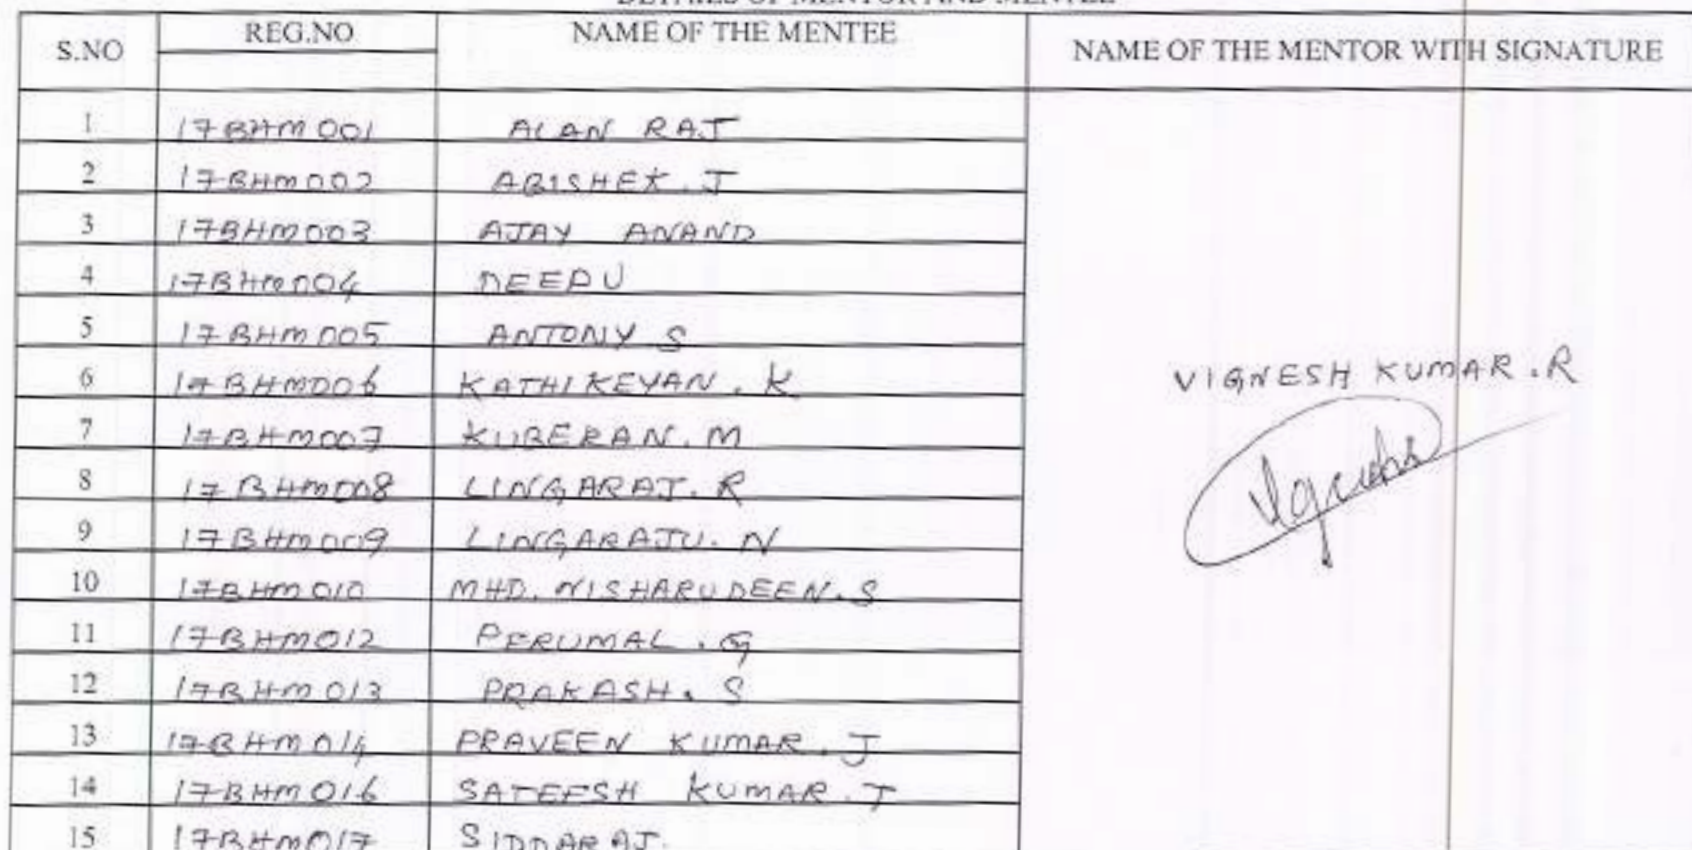 DETAILS OF MENTOR AND MENTEE
S.NO REG.NO NAME OF THE MENTEE NAME OF THE MENTOR WITH SIGNATURE
1 17BHM001 ALAN RAJ
2 17BHM002 ABISHEK.J
3 17BHM003 AJAY ANAND
4 17BHM004 DEEPU
5 17BHM005 ANTONY S
6 17BHM006 KATHIKEYAN.K
VIGNESH KUMAR.R
7 17BHM007 KUBERAN.M
8 17BHM008 LINGARAJ.R
9 17BHM009 LINGARAJU.N
10 17BHM010 MHD.NISHARUDEEN.S
11 17BHM012 PERUMAL.G
12 17BHM013 PRAKASH.S
13 17BHM014 PRAVEEN KUMAR.J
14 17BHM016 SATEESH KUMAR.T
15 17BHM017 SIDDARAJ.